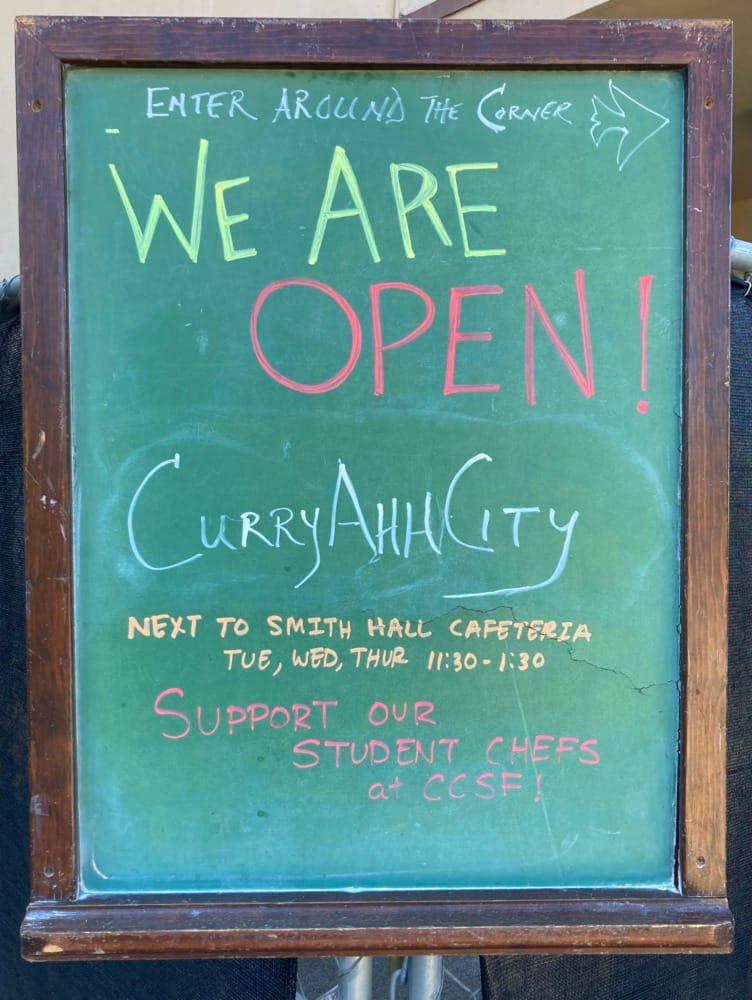 ENTER AROUND THE CORNER
WE ARE
OPEN!
CURRYAHHCITY
NEXT TO SMITH HALL CAFETERIA
TUE, WED, THUR 11:30-1:30
SUPPORT OUR
STUDENT CHEFS
at CCSF!